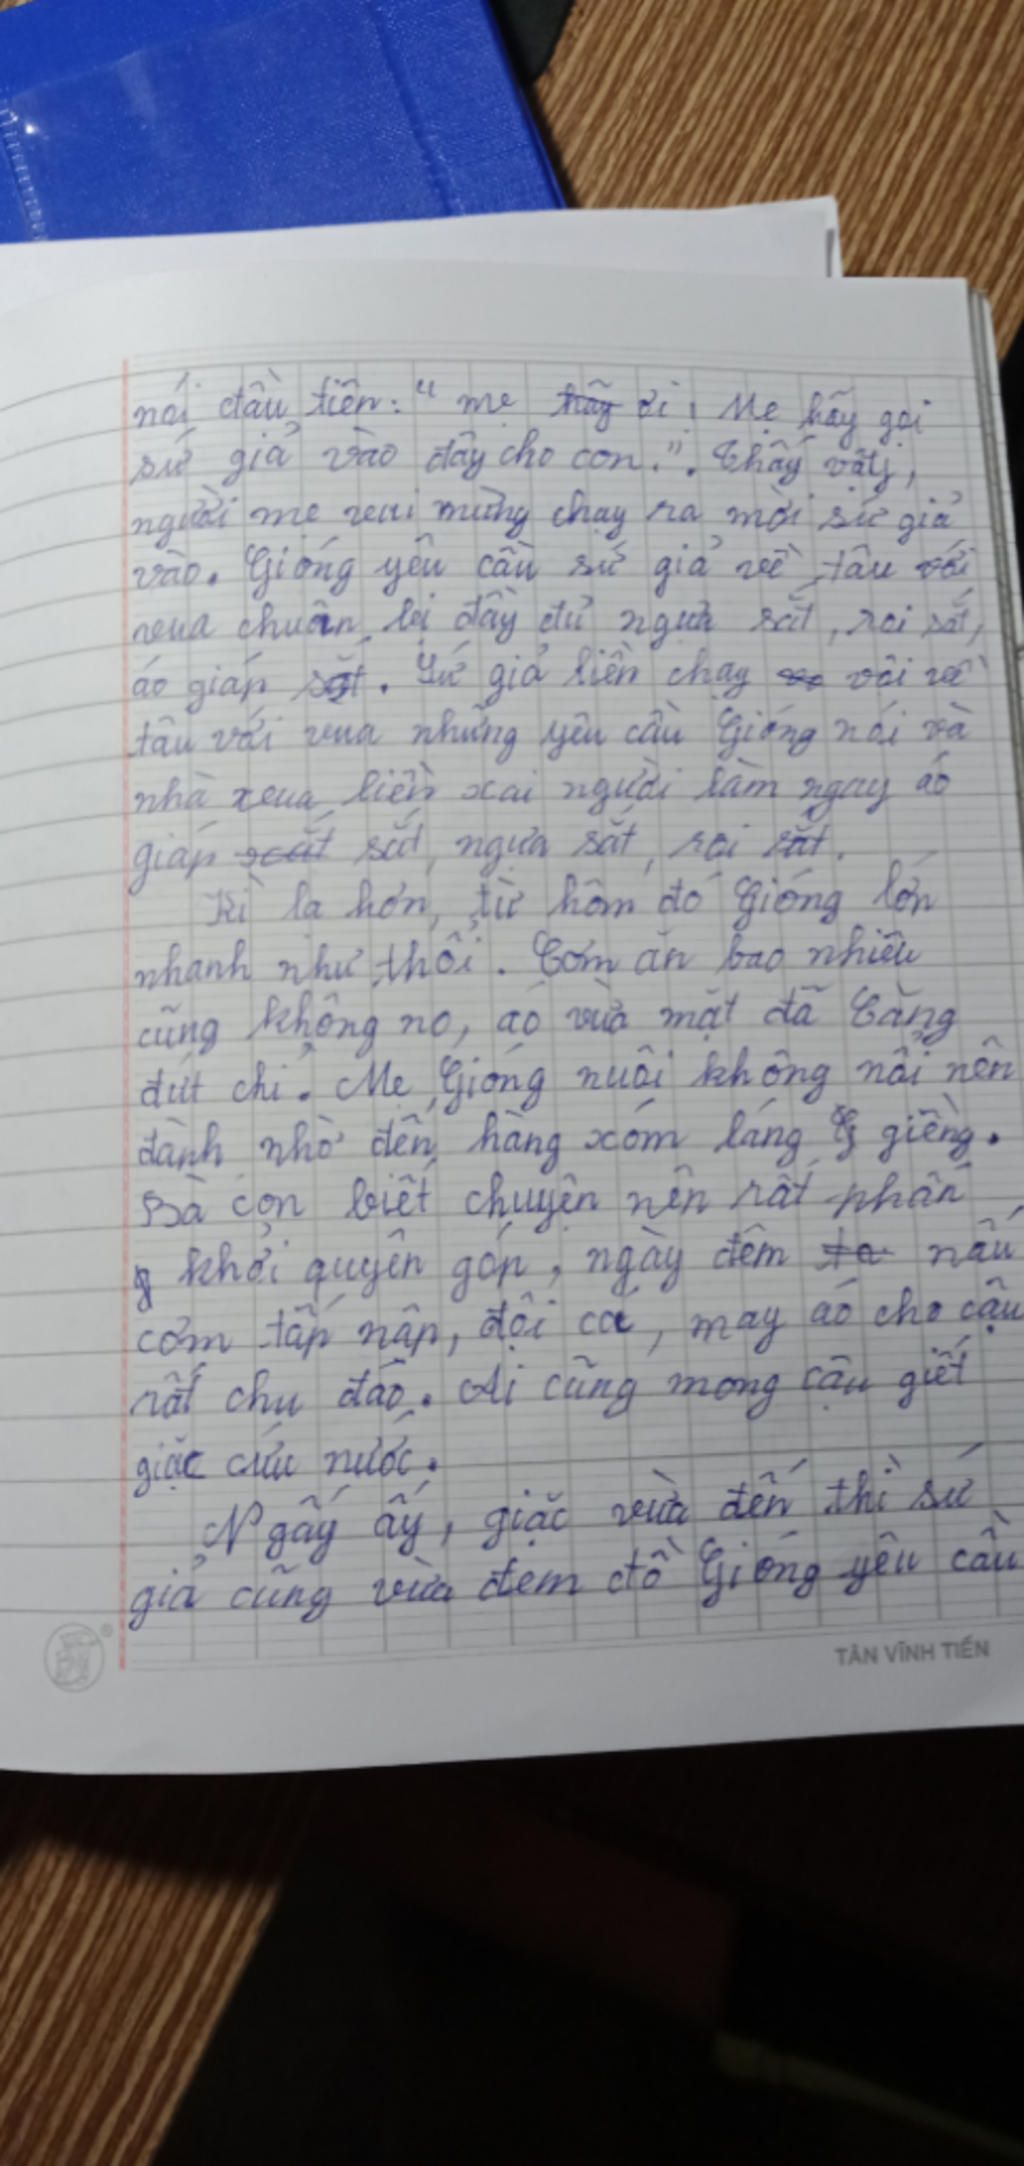 nói đầu tiên: " mẹ hãy ơi! Mẹ hãy gọi
sứ giả vào đây cho con.". Thấy vậy,
người mẹ vui mừng chạy ra mời sứ giả
vào. Gióng yêu cầu sứ giả về tâu với
vua chuẩn bị đầy đủ ngựa sắt, roi sắt,
áo giáp sắt. Sứ giả liền chạy vội về
tâu với vua những yêu cầu Gióng nói và
nhà xeua liền xai người làm ngay áo
giáp sắt, ngựa sắt, roi sắt.
Kì lạ hơn, từ hôm đó Gióng lớn
nhanh như thổi. Cơm ăn bao nhiêu
cũng không no, áo vừa mặt đã căng
đứt chỉ. Mẹ Gióng nuôi không nổi nên
đành nhờ đến hàng xóm láng giềng.
Bà con biết chuyện nên rất phấn
khởi quyên góp, ngày đêm nấu
cơm tấp nập, đội cà, may áo cho cậu
rất chu đáo. Ai cũng mong cậu giết
giặc cứu nước.
Ngấy ấy, giặc vừa đến thì sứ
giả cũng vừa đem đồ Gióng yêu cầu
TÂN VĨNH TIẾN